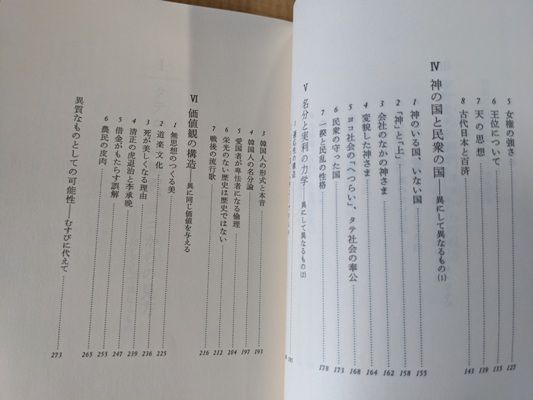 5 女権の強さ 127
6 王位について 135
7 天の思想 139
8 古代日本と百済 143
Ⅳ 神の国と民衆の国 異にして異なるもの(1)
1 神のいる国、いない国 155
2 「神」と「上」 158
3 会社のなかの神さま 162
4 変貌した神さま 164
5 ヨコ社会の「へつらい」、タテ社会の奉公 168
6 民衆の守った国 173
7 一揆と民乱の性格 178
Ⅴ 名分と実利の力学 異にして異なるもの(2)
3 韓国人の形式と本音 193
4 韓国人の名分論 197
5 愛国者が卑怯者になる倫理 204
6 栄光のない歴史は歴史ではない 212
7 戦後の流行歌 216
Ⅵ 価値観の構造 異に同じ価値を与える
1 無思想のつくる美
2 道楽文化 225
3 死が美しくなる理由 236
4 清正の虎退治と李承晩 239
5 借金がもたらす誤解 247
6 農民の皮肉 255
265
異質なものとしての可能性 むすびに代えて 273